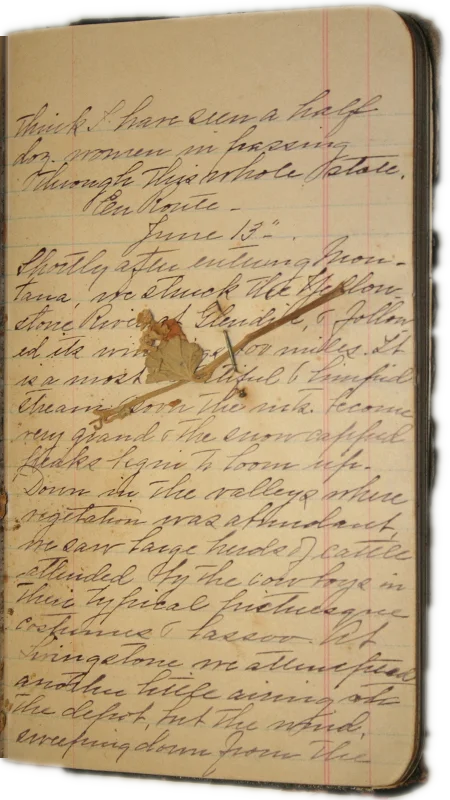 think I have seen a half
doz. women in passing
through this whole state.
En Route -
June 13".
Shortly after entering Mon-
tana, we struck the Yellow-
stone River at Glendive, & follow
ed its 400 miles. It
is a most & limpid
stream. Soon the mts. become
very grand & the snow capped
peaks begin to loom up.
Down in the valleys where
vegetation was abundant,
we saw large herds of cattle
attended by the cow boys in
their typical picturesque
costumes & lassoo. At
Livingstone we attempted
another little airing at
the depot, but the wind,
sweeping down from the